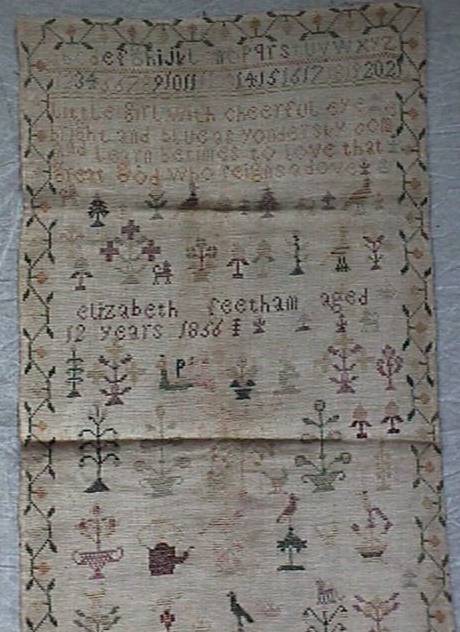 efghijkl opqrs tuvwxyz
234567 91011 14151617 2021
little girl with cheerful eye
bright and blue as yonder sky com
and learn betimes to love that
great God who reigns above
elizabeth feetham aged
12 years 1856
P